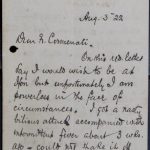 Aug. 3rd 22
Dear Mr. Cormenati.
On this red letter
day I would wish to be at
but unfortunately I am
powerless in the face of
circumstances. I got a nasty
bilious attack accompanied with
intermittent fever about 3 wks.
ago — could not shake it off